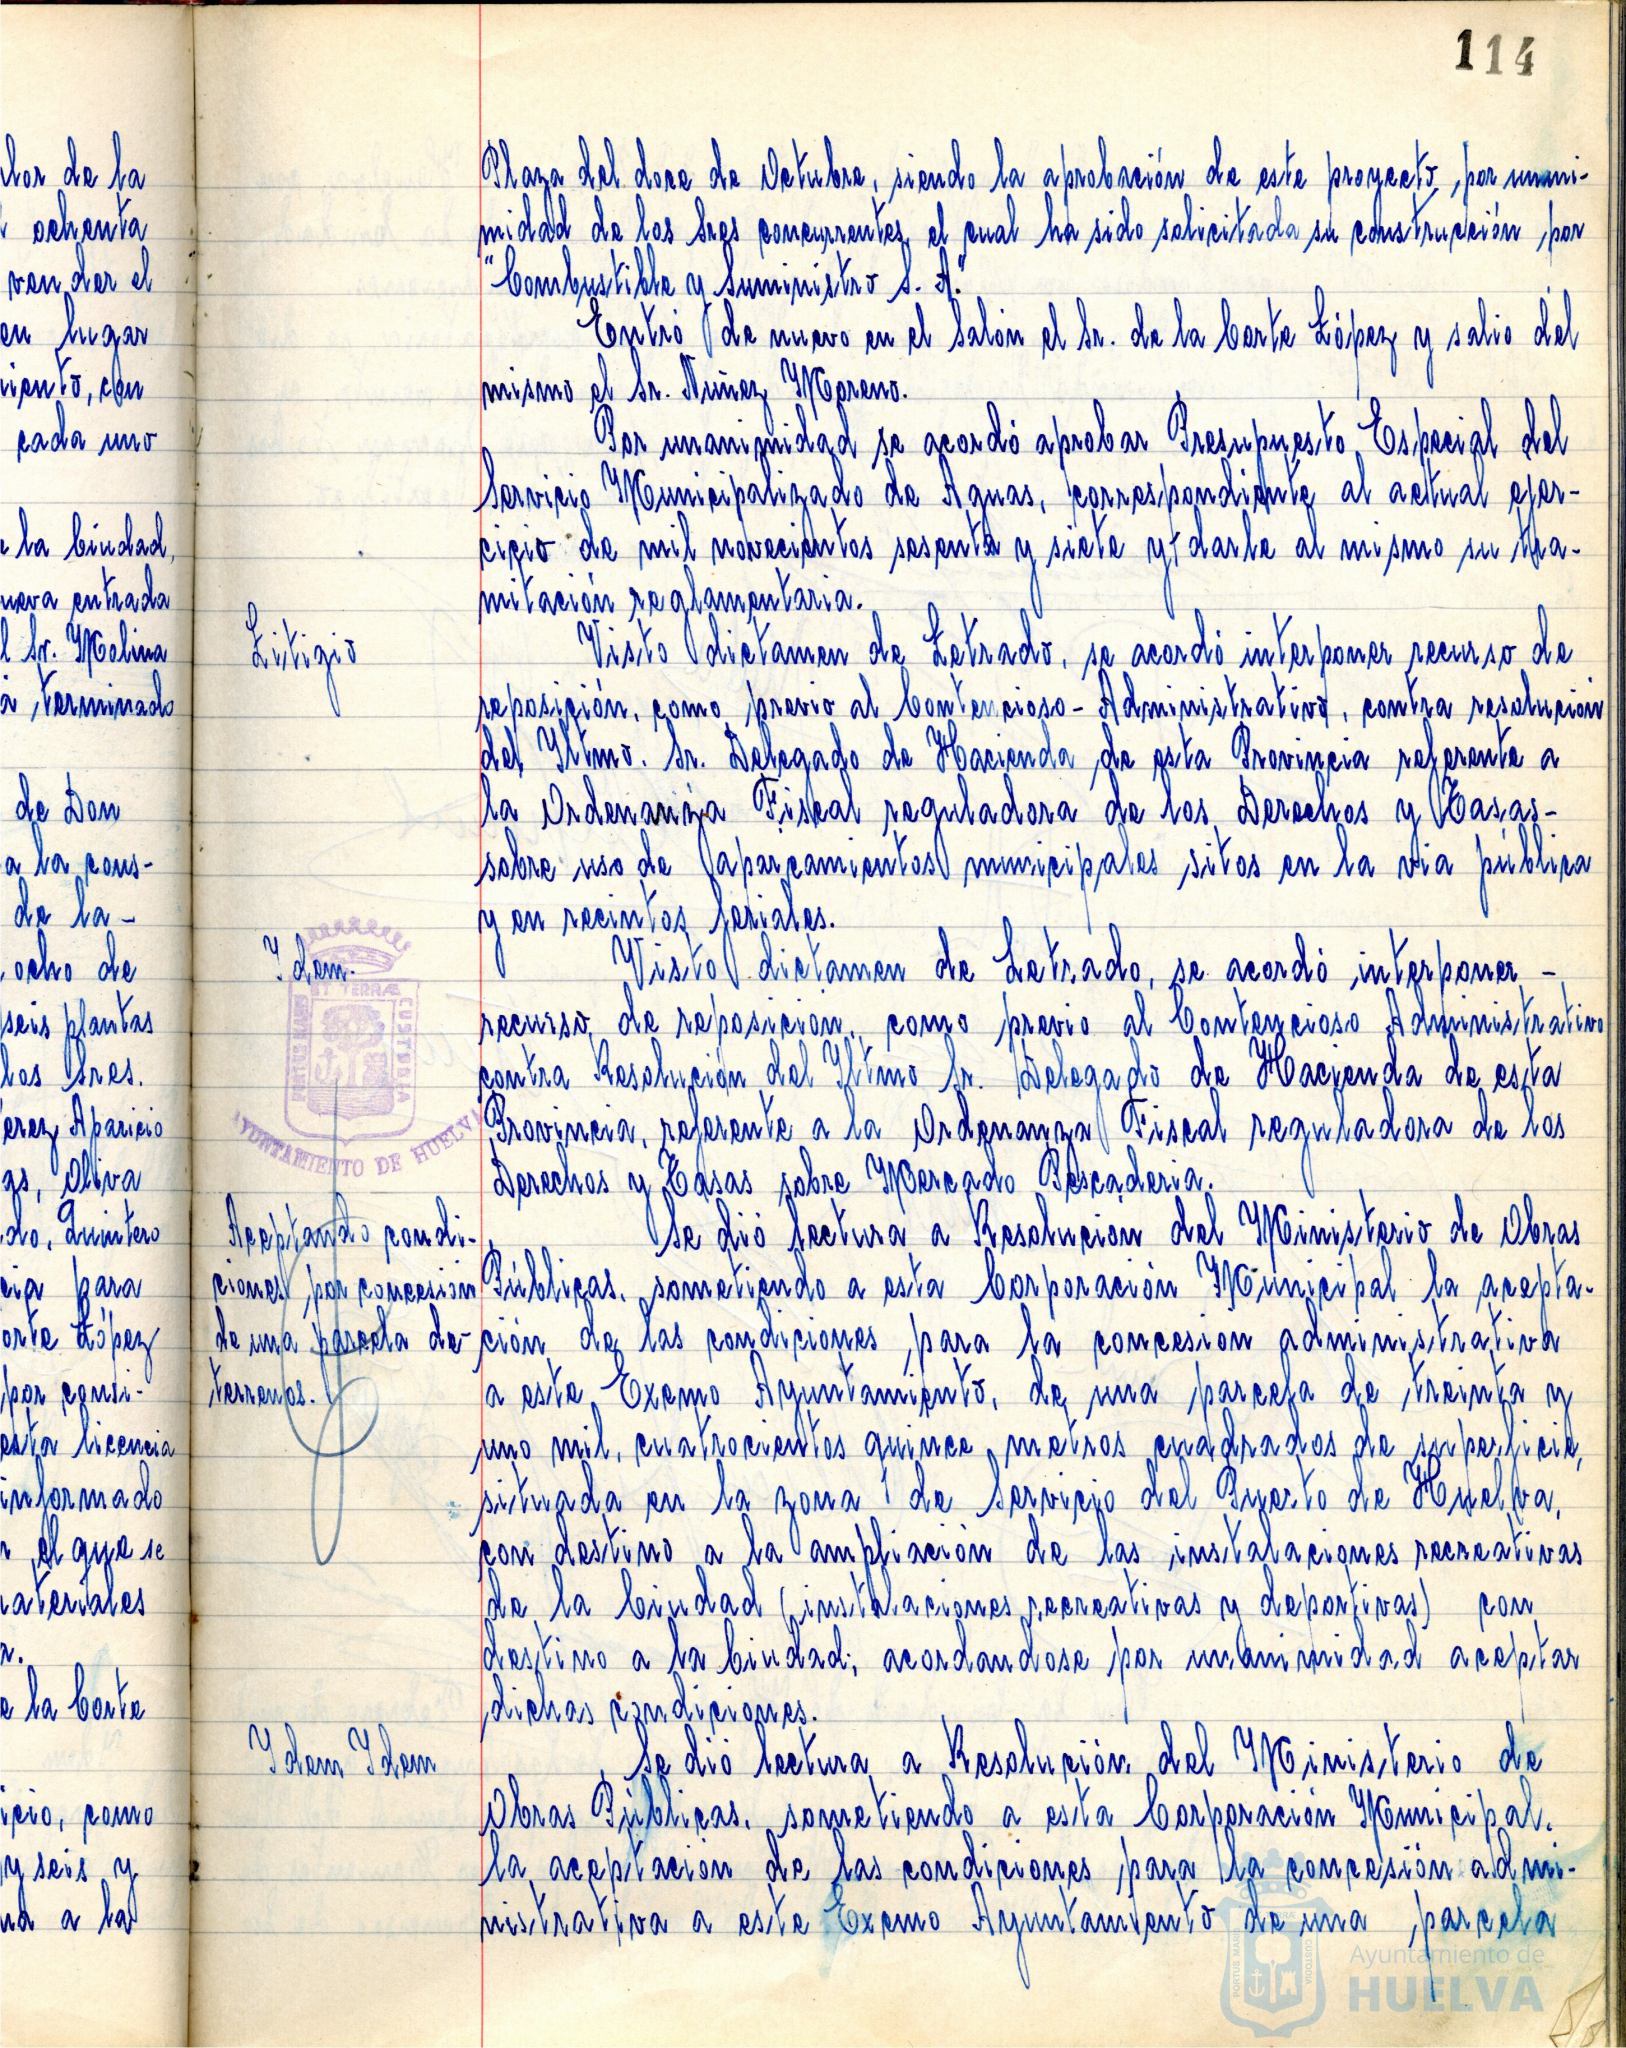 114
lor de la
ochenta
vender el
en lugar
iento, con
cada uno
la Ciudad,
ueva entrada
l Sr. Molina
terminado
de Don
a la cons-
de la-
ocho de
seis plantas
los Sres.
erez Aparicio
as, Oliva
do, Quintero
cia para
orte López
por consi-
esta licencia
informado
el que se
ateriales
a.
e la Corte
icio, como
y seis y
na a la
Plaza del doce de Octubre, siendo la aprobación de este proyecto, por unani-
midad de los Sres concurrentes, el cual ha sido solicitada su construcción por
"Combustible y Suministro S. A."
Entró de nuevo en el Salón el Sr. de la Corte López y salió del
mismo el Sr. Núñez Moreno.
Por unanimidad se acordó aprobar Presupuesto Especial del
Servicio Municipalizado de Aguas, correspondiente al actual ejer-
cicio de mil novecientos sesenta y siete y darle al mismo su tra-
mitación reglamentaria.
Litigio
Visto dictamen de Letrado, se acordó interponer recurso de
reposición, como previo al Contencioso-Administrativo, contra resolución
del Iltmo. Sr. Delegado de Hacienda de esta Provincia referente a
la Ordenanza Fiscal reguladora de los Derechos y Tasas-
sobre uso de aparcamientos municipales sitos en la vía pública
y en recintos feriales.
Idem.
Visto dictamen de Letrado, se acordó interponer -
recurso de reposición, como previo al Contencioso Administrativo
contra Resolución del Iltmo Sr. Delegado de Hacienda de esta
Provincia, referente a la Ordenanza Fiscal reguladora de los
Derechos y Tasas sobre Mercado Pescaderia.
ET TERRÆ
PORTUS MARIS
CUSTODIA
AYUNTAMIENTO DE HUELVA
Aceptando condi-
ciones por concesión
de una parcela de-
terrenos.
Se dió lectura a Resolución del Ministerio de Obras
Públicas, sometiendo a esta Corporación Municipal la acepta-
ción de las condiciones para la concesión administrativa
a este Excmo Ayuntamiento, de una parcela de treinta y
uno mil, cuatrocientos quince metros cuadrados de superficie,
situada en la zona de Servicio del Puerto de Huelva,
con destino a la ampliación de las instalaciones recreativas
de la Ciudad (instalaciones recreativas y deportivas) con
destino a la Ciudad; acordandose por unanimidad aceptar
dichas condiciones.
Idem Idem
Se dió lectura a Resolución del Ministerio de
Obras Públicas, sometiendo a esta Corporación Municipal.
la aceptación de las condiciones para la concesión admi-
nistrativa a este Excmo Ayuntamiento de una parcela
PORTUS MARIS
CUSTODIA
Ayuntamiento de
HUELVA